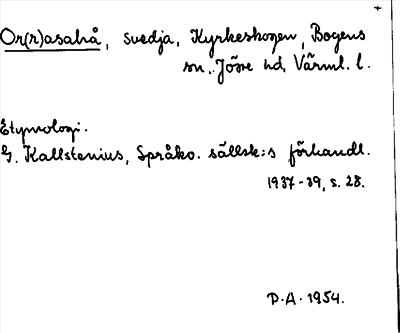 Or(r)asahå, svedja, Kyrkeskogen, Bogens
sn, Jösse hd, Värml. l.
Etymologi.
G. Kallstenius, Språkv. sällsk:s förhandl.
1937-39, s. 28.
P.A. 1954.